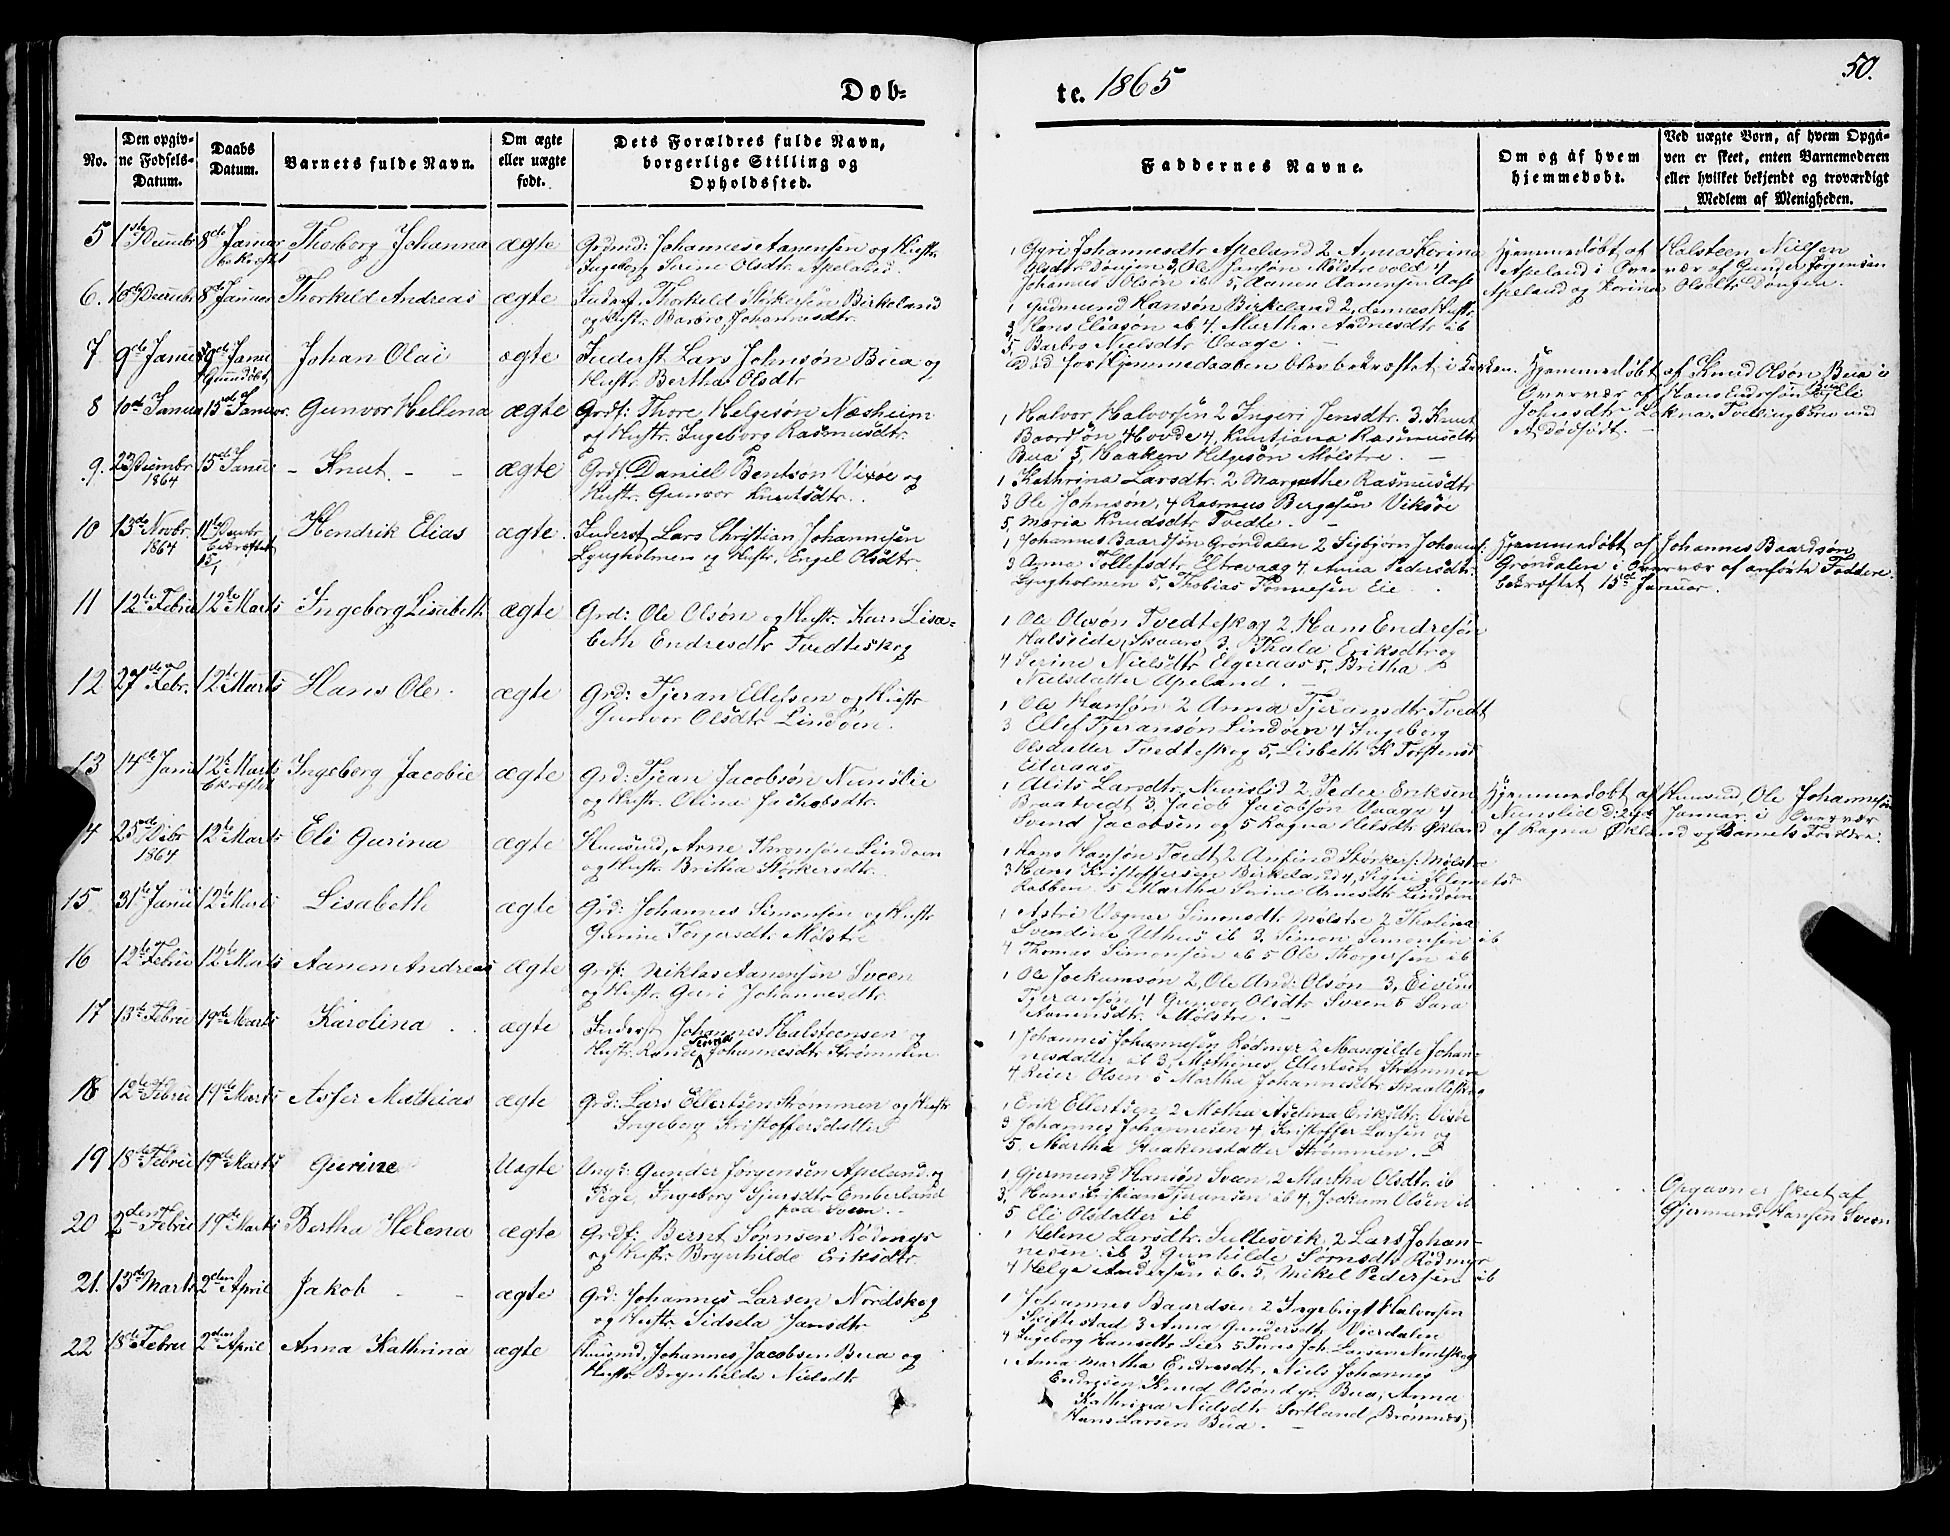 Døb-
te. 1865
50.
No.
Den opgiv-
ne Fødsels-
Datum.
Daabs
Datum.
Barnets fulde Navn.
Om ægte
eller uægte
født.
Dets Forældres fulde Navn,
borgerlige Stilling og
Opholdssted.
Faddernes Navne.
Om og af hvem
hjemmedøbt.
Ved uægte Børn, af hvem Opga-
ven er skeet, enten Barnemoderen
eller hvilket bekjendt og troværdigt
Medlem af Menigheden.
5 1ste 8de Januar Thorborg Johanna ægte Grdmd: Johannes Aanensen og Hustr.
Ingeborg Serine Olsdtr. Apeland.
1 Gyri Johannesdtr Apeland 2 Anna Korina
Olsdtr. 3, Ole Hansøn Mølstrevold 4
Johannes Olsøn ib 5, Aanen Aanensen
Hjemmedøbt af Halsteen Nielsen
Apeland i Overvær af Gunder Jørgensen
Apeland og Korina Olsdtr
6. 8de Januar Thorkeld Andreas ægte Inderst Thorkeld Størkersen Birkeland
og Hustr. Barbro Johannesdtr.
1 Gudmund Hansøn Birkeland 2, dennes Hustr.
3, Hans Eliasøn ib 4. Martha Aadnesdtr ib
5, Barbro Nielsdtr Vaage. –
7 9de Januar Johan Olai ægte Inderst Lars Johnsøn Bua og
Hustr. Bertha Olsdtr
Død før Hjemmedaaben blev bekræftet i Kirken.
Hjemmedøbt af Knud Olsøn Bua i
Overvær af Hans Endresøn Bua og Eli
Johnsdtr Løknas, Tvillingbarn med
et dødfødt.
8 10de Januar 15de Januar. Gunvor Hellena ægte Grdf: Thore Helgesøn Næsheim
og Hustr. Ingeborg Rasmusdtr.
1 Halvor Halvorsen 2 Ingeri Jensdtr. 3. Knut
Baardsøn Hovde 4, Kristiana Rasmusdtr
Bua 5, Haaken Helgesøn Mølstre. –
9. 23 Decembr 15de Januar – Knut – – ægte Grdf. Daniel Bentson Vixøe og
1864
Hustr. Gunvor Knutsdtr.
1 Kathrina Larsdtr. 2 Margrethe Rasmusdtr
3 Ole Johnsøn, 4 Rasmus Bergesen Viksøe
5, Maria Knudsdtr Tvedte. –
10 13de Novbr. 11te Hendrik Elias ægte. Inderst Lars Christian Johannesen
1864
Lyngholmen og Hustr. Engel Olsdtr.
1 Johannes Baardsøn Grøndalen 2 Sigbjørn Johannes:
3 Anna Tollefsdtr Eltrevaag 4 Anna Pedersdtr.
Lyngholmen 5, Thobias Tønnesen Eie
Hjemmedøbt af Johannes Baardsøn
Grøndalen i Overvær af anførte Faddere.
bekræftet 15de Januar.
11 12te Febru 12te Marts Ingeborg Lisabeth ægte Grd: Ole Olsøn og Hustr. Karn Lisa-
beth Endresdtr Tvedteskog
1 Ole Olsøn Tvedteskog 2, Hans Endresøn
Halleide, Skaars, 3. Thala Eriksdtr og
4 Serine Nielsdtr Elgeraas 5, Britha
Nielsdatter Apeland. –
12 27de Febr. 12te Marts Hans Ole. ægte Grd: Tjeran Ellefsen og Hustr
Gunvor Olsdtr Lindøen.
1 Ole Hansøn 2 Anna Tjeransdtr Tvedt
3 Ellef Tjeransøn Lindøen 4 Ingeborg
Olsdatter Tvedteskog 5, Lisbeth K Torstensd
Elleraas
13 14de Janu 12te Marts Ingeborg Jacobie ægte Grd: Tjran Jacobsøn Nunslie
bekræftet
og Hustr. Olina Jachobsdtr.
1 Alits Larsdtr. Nunslid 2, Peder Eriksen
Braatvedt 3, Jacob Jacobsøn Vaage 4
Svend Jacobsen og 5 Ragna Nilsdtr Økland
Hjemmedøbt af Huusmd, Ole Johannesøn
Nunslid D: 29de Januar i Overvær
af Ragna Økland og Barnets Faddre.
14 25de Dcbr 12te Marts Eli Gurina ægte Huusmd, Arne Thronsøn Lindøen
1864
og Hustr. Britha Størkersdtr.
1 Hans Hansøn Tvedt, 2 Anfind Størkers: Mølstre
3 Hans Kristoffersen Birkeland 4, Signi Klemetsdtr
Labben. 5 Martha Serine Arnesdtr Lindøen
15 31te Janu 12te Marts Lisabeth ægte Grd: Johannes Simonsøn og Hustr.
Gurine Torgersdtr. Mølstre
1 Astri Vogner Simonsdtr Mølstre 2 Tholina
Svendine Althus ib 3, Simon Simonsen ib
4 Thomas Simonsen ib 5 Ole Thorgersen ib
16 12te Febru 12te Marts Aanen Andreas ægte Grdf: Niklas Aanensen Sveen
og Hustr. Guri Johannesdtr
1 Ole Jockumsøn 2, Ole And: Olsøn 3, Eivind
Tjeransøn 4 Gunvor Olsdtr Sveen 5 Sara
Aanensdtr. Mølstre. –
17 13de Febru 19de Marts Karolina ægte Inderst Johannes Halsteensen og
Hustr. Johannesdtr Strømmen.
1 Johannes Johannesen Rødmyr 2 Mangilde Johan-
nesdatter ib 3, Mathines Ellertsøn Strømmen
4 Reier Olsen 5 Martha Johannesdtr Skaalleskog
18 12te Febru 19de Marts Asser Mathias ægte Grd: Lars Ellertsen Strømmen og Hustr
Ingeborg Kristoffersdatter
1 Erik Ellertsen, 2 Motha Aselina Eriksdtr. Vixøe
3 Johannes Johannesen 4 Kristoffer Larsen og
5. Martha Haakensdatter Strømmen. –
19 18de Febru 19de Marts Gurine Uægte Ungk: Gunder Jørgensen Apeland og
Pige, Ingeborg Sjursdtr Emberland
paa Sveen.
1 Gjermund Hansøn Sveen, 2 Martha Olsdtr. ib
3, Hans Cristian Tjeransen ib 4, Jockum Olsen ib
5 Eli Olsdatter ib
Opgaven er skeet af
Gjermund Hansen Sveen
20 2den Febru 19de Marts Bertha Helena ægte Grdf: Bernt Sørnsen Rødmyr
og Hustr. Brynhilde Eriksdtr.
1 Helene Larsdtr. Tittelsvik, 2 Lars Johan-
nesen ib 3 Gunhilde Sørnsdtr Rødmyr
4 Helge Andersen ib. 5, Mikel Pedersen ib
21. 13de Marts 2den April Jakob – – ægte Grd: Johannes Larsen Nordskog
og Hustr Sidsela Jansdtr
1 Johannes Baardsen 2 Ingebrigt Halvorsen
Skiftestad 3 Anna Gundersdtr Vierdalen
4 Ingeborg Hansdtr Lier 5 Tøns Joh. Larsen Nordskog
22 18de Febru 2den April Anna Kathrina ægte Huusmd, Johannes Jacobsen Bua og
Hustr Brynhilde Nielsdtr
1 Anna Martha Endresdtr, Niels Johannes
Endresen, Knud Olsøn d.y. Bua, Anna
Kathrina Nielsdtr Sortland, Brømnes,
Hans Larsen Bua. –